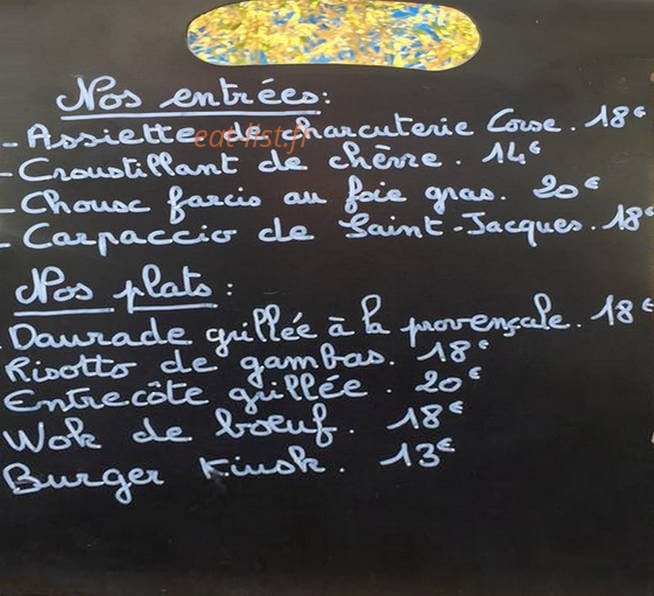 Nos entrées:
- Assiette de charcuterie Corse. 18€
eat-list.fr
- Croustillant de chèvre. 14€
- Choux farcis au foie gras. 20€
- Carpaccio de Saint-Jacques. 18€
Nos plats:
- Daurade grillée à la provençale. 18€
Risotto de gambas. 18€
Entrecôte grillée. 20€
Wok de bœuf. 18€
Burger Kiusk. 13€